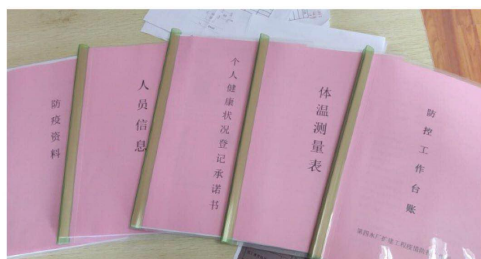 防疫资料
人员信息
个人健康状况登记承诺书
体温测量表
防控工作台账